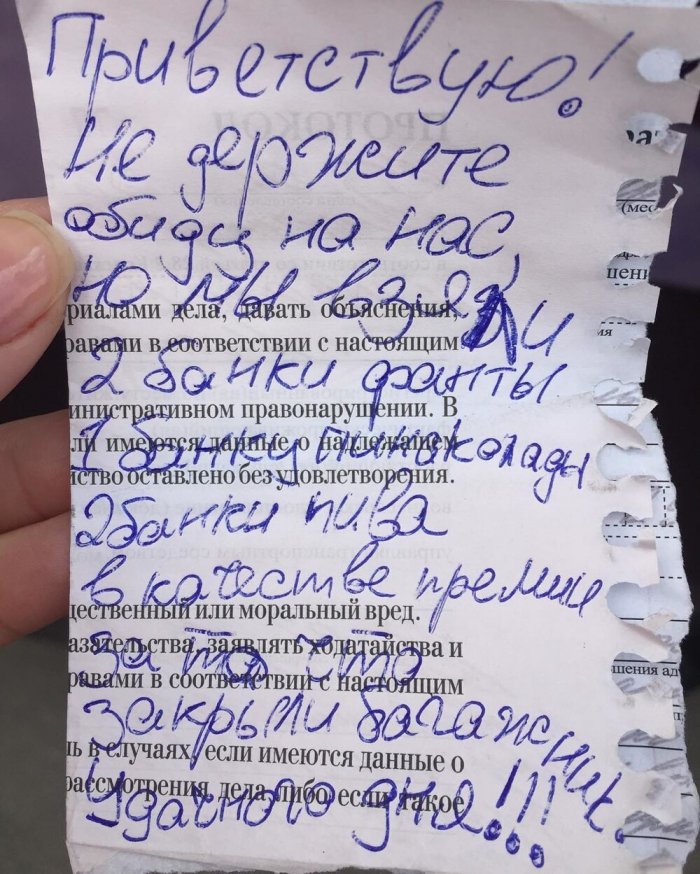 Приветствую!
Не держите
обиды на нас,
но мы взяли
риалами дела, давать объяснения,
равами в соответствии с настоящим
2 банки фанты
министративном правонарушении. В
ли имеются данные о надлежащем
1 банку пинаколады
йство оставлено без удовлетворения.
2 банки пива
в качестве премии
щественный или моральный вред.
азательства, заявлять ходатайства и
за то что
равами в соответствии с настоящим
закрыли багажник.
ь в случаях, если имеются данные о
рассмотрения дела либо если такое
Удачного дня!!!
ПРОТОКОЛ
(мес
цени
мя
шения ад